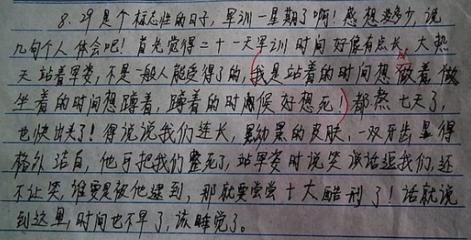 8.29是个标志性的日子，军训一星期了啊！感想蛮多少，说
几句个人体会吧！首先觉得二十一天军训时间好像有点长，大热
天站着军姿，不是一般人能受得了的，我是站着的时间想做着做
坐着的时间想蹲着，蹲着的时候好想死！都熬七天了，
也快出头了！得说说我们连长，黑幼黑的皮肤，一双牙齿显得
格外洁白，他可把我们整死了，站军姿时说笑话逗我们，还
不让笑，谁要是被他逮到，那就要尝尝十大酷刑了！话就说
到这里，时间也不早了，该睡觉了。